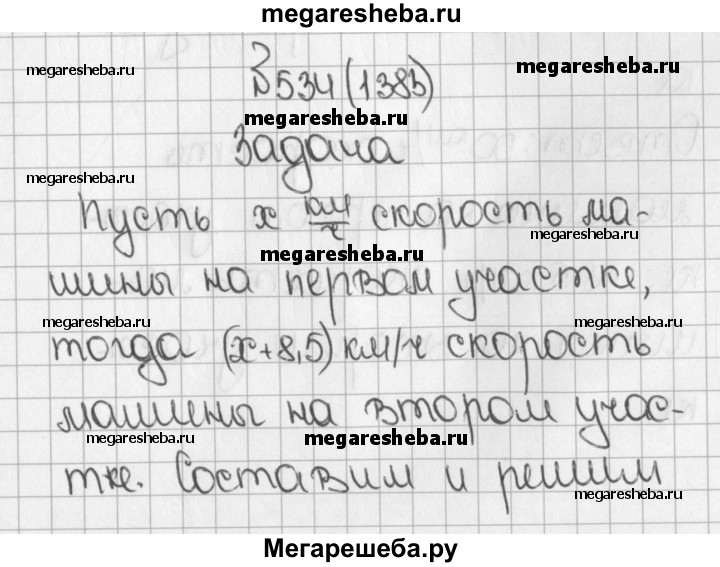 megaresheba.ru
megaresheba.ru
№534 (1383)
megaresheba.ru
megaresheba.ru
Задача
megaresheba.ru
Пусть х км/ч скорость ма-
megaresheba.ru
megaresheba.ru
шины на первом участке,
megaresheba.ru
megaresheba.ru
тогда (х+8,5) км/ч скорость
машины на втором учас-
megaresheba.ru
megaresheba.ru
тке. Составим и решим
megaresheba.ru
Мегарешеба.ру